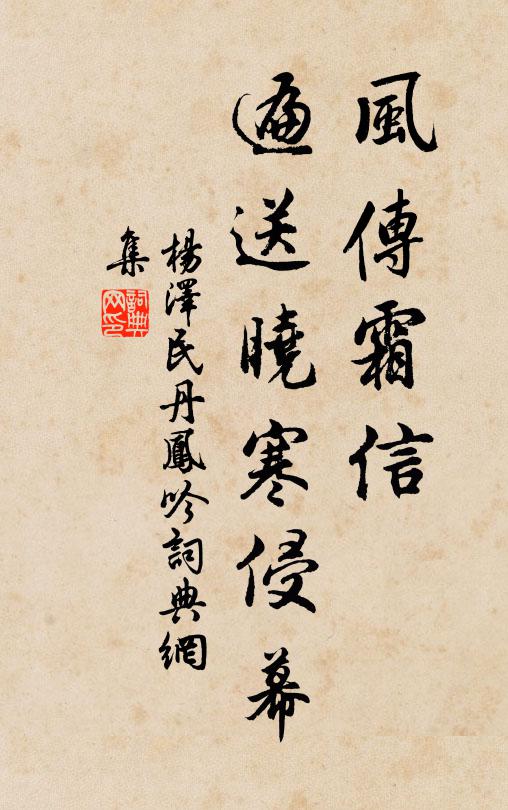 風傳霜信
遍送曉寒侵幕
楊澤民丹鳳吟詞典網
集
詞典
网印